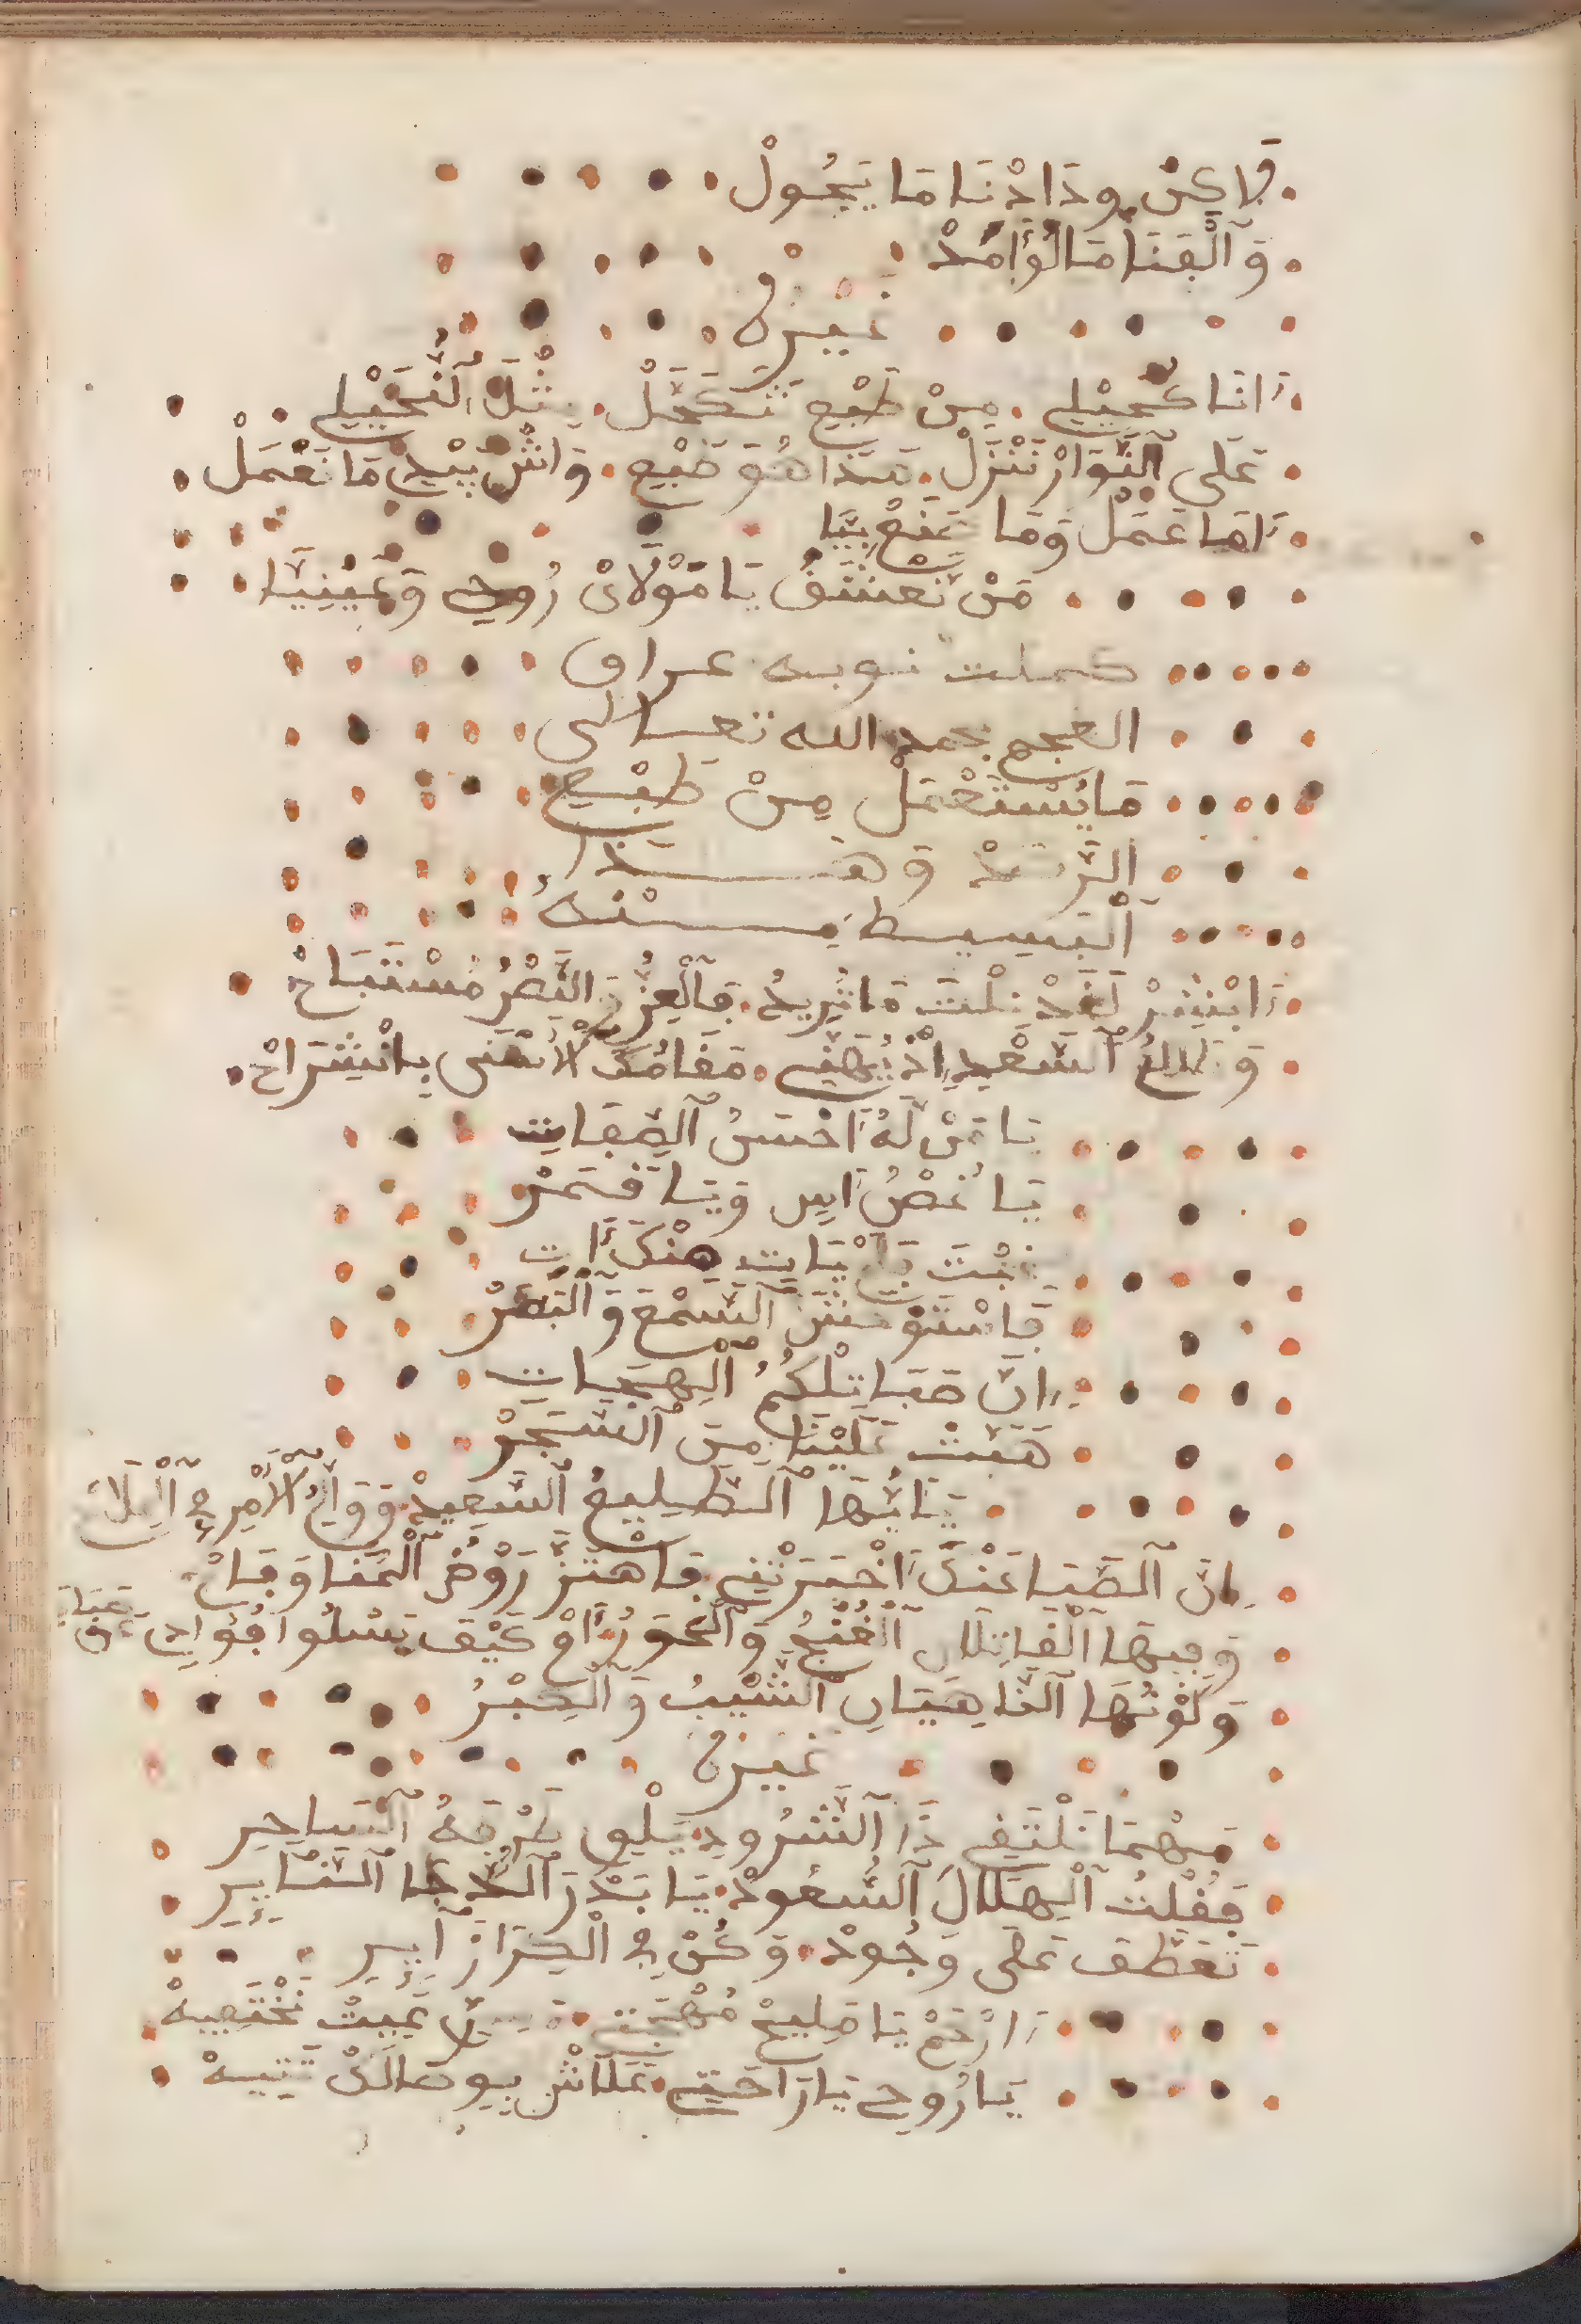 لاكن ودادنا ما يحول
والفنا مالو أمد
غيره
انا كحيلي من طبع نكحل مثل النحيلي
على النوار ننزل هذا هو طبع واش بيدي ما نعمل
اما عمل وما بيا
من نعشق يا مولاي روحي وعينيا
كملت نوبه عراق
العجم بحمد الله تعالى
ما يستعمل من طبع
الرصد وهذا
البسيط منه
ابشر لقد نلت ما تريد فالعز والنصر مستباح
وطالع السعد اذ يهني مقامك الاسنى بانشراح
يا من له احسن الصفات
يا غصن اس ويا قمر
غبت
فاستوحش السمع والبصر
ان صبا تلكم الجهات
هبت علينا من السحر
يايها الطليع السعيد ووالي الامر في الملاح
ان الصبا عنك اخبرتني فاهتز روض المنا وفاح
وفيها القاتلان الغنج والحور
ولونها الناهيان الشيب والكبر
غيره
مهما نلتقي ذا الشرود يلوي طرفه الساحر
فقلت الهلال السعود يا بدر الدجا الناير
تعطف على وجود وكن في الكرا زاير
ارحم يا مليح مهجتي عييت نختفيه
يا روحي يا راحتي علاش بوصالك تتيه